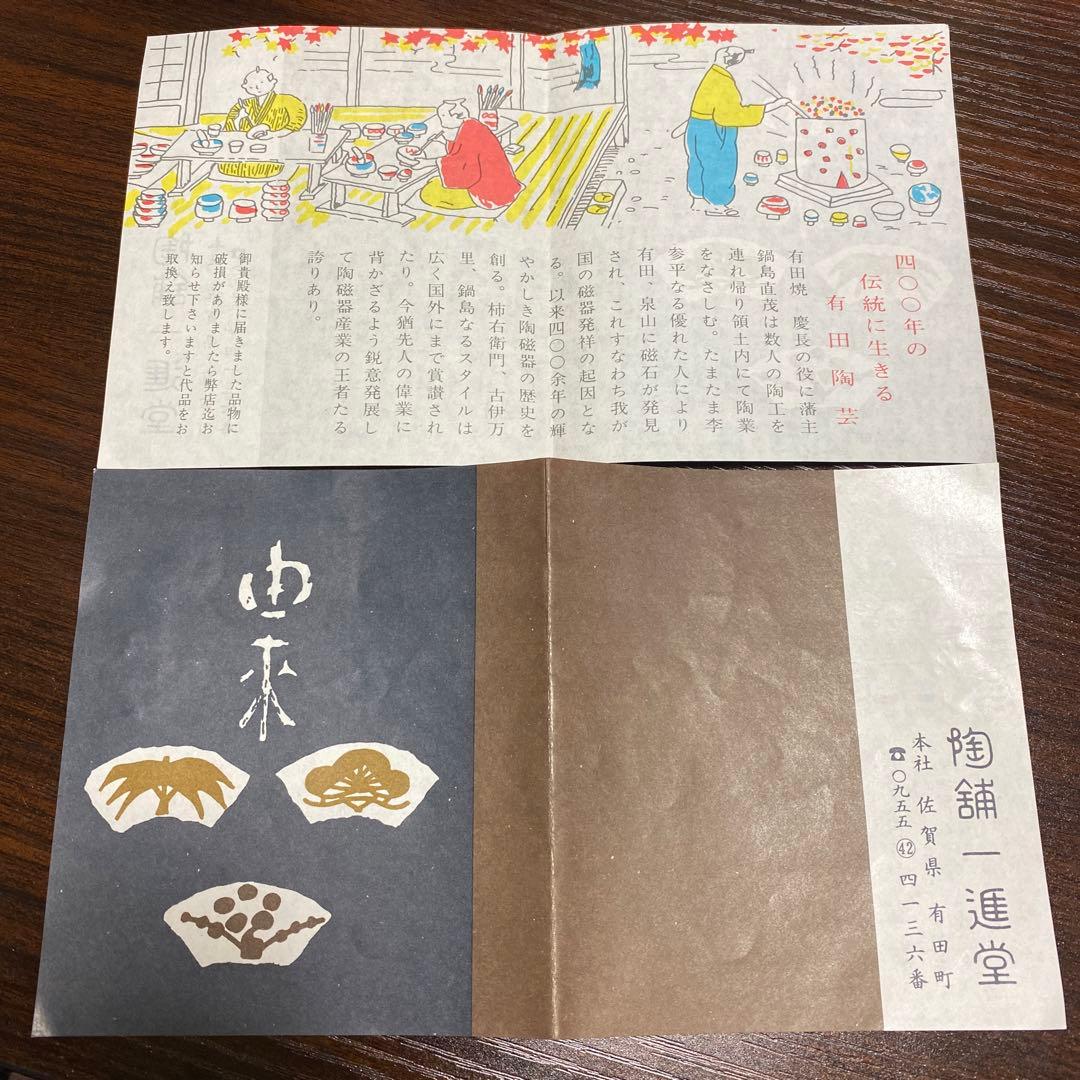 四〇〇年の
伝統に生きる
有田陶芸
有田焼 慶長の役に藩主
鍋島直茂は数人の陶工を
連れ帰り領土内にて陶業
をなさしむ。たまたま李
参平なる優れた人により
有田、泉山に磁石が発見
され、これすなわち我が
国の磁器発祥の起因とな
る。以来四〇〇余年の輝
やかしき陶磁器の歴史を
創る。柿右衛門、古伊万
里、鍋島なるスタイルは
広く国外にまで賞讃され
たり。今猶先人の偉業に
背かざるよう鋭意発展し
て陶磁器産業の王者たる
誇りあり。
御貴殿様に届きました品物に
破損がありましたら弊店迄お
知らせ下さいますと代品をお
取換え致します。
由来
陶舗一進堂
本社 佐賀県 有田町
☎〇九五五㊷四一三六番